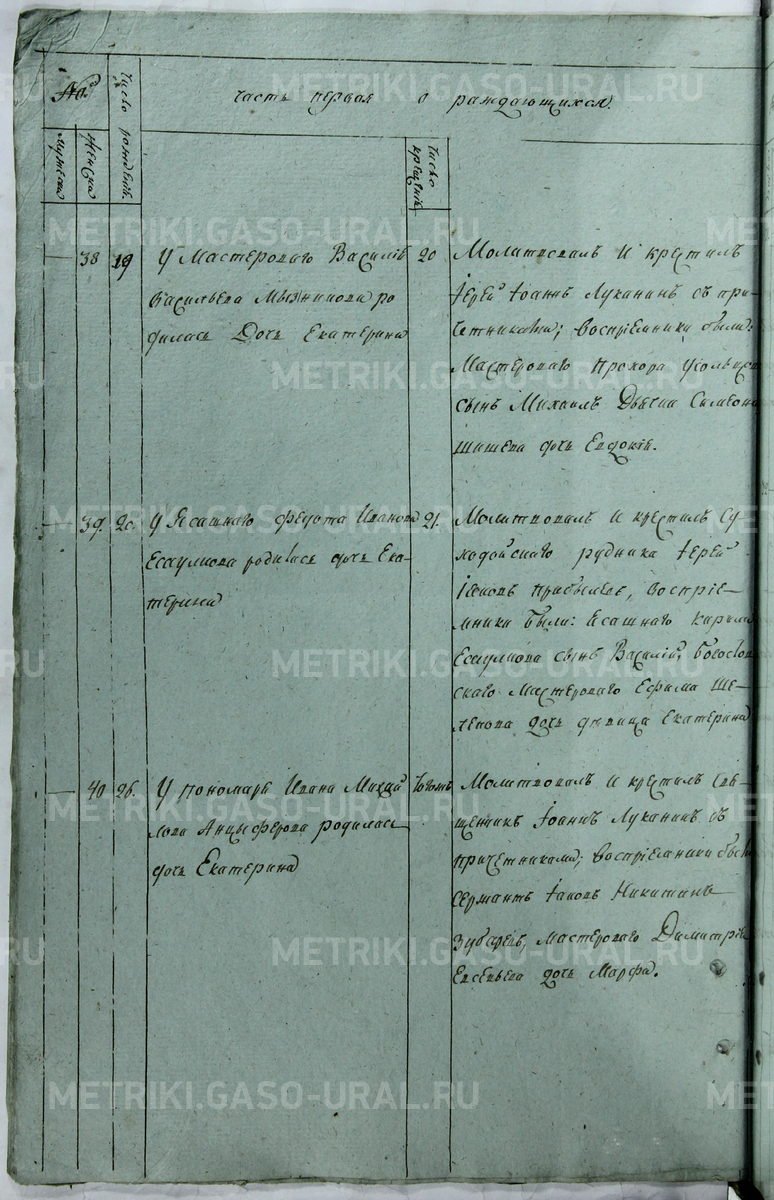 №
Число рожденія.
Часть первая о раждающихся.
Мужеска
Женска
Число крещенія
38 19 У Мастероваго Василія
Васильева ро
дилась Дочь Екатерина
20 Молитвовалъ и крестилъ
Іерей Іоаннъ Луканинъ съ при
четниками; Воспріемники были:
Мастероваго Прохора
сынъ Михаилъ Дьячка Симеона
Шишева дочь Евдокія.
39. 20. У Ясашнаго Федота Иванова
Есаулкова родилась дочь Ека-
терина
21. Молитвовалъ и крестилъ Су
ходойскаго рудника Іерей
Іаковъ Прибылевъ, Воспріе-
мники были: Ясашнаго Карила
Есаулкова сынъ Василій; Богослов
скаго Мастероваго Ефима Ше-
лепова дочь девица Екатерина
40 26. У пономаря Ивана Михай
лова Анцыферова родилась
дочь Екатерина
Тогожъ Молитвовалъ и крестилъ Свя-
щенникъ Іоаннъ Луканинъ съ
причетниками; Воспріемники были
сержантъ Іаковъ Никитинъ
Зубаревъ, Мастероваго Димитрія
Евсевьева дочь Марфа.
METRIKI.GASO-URAL.RU